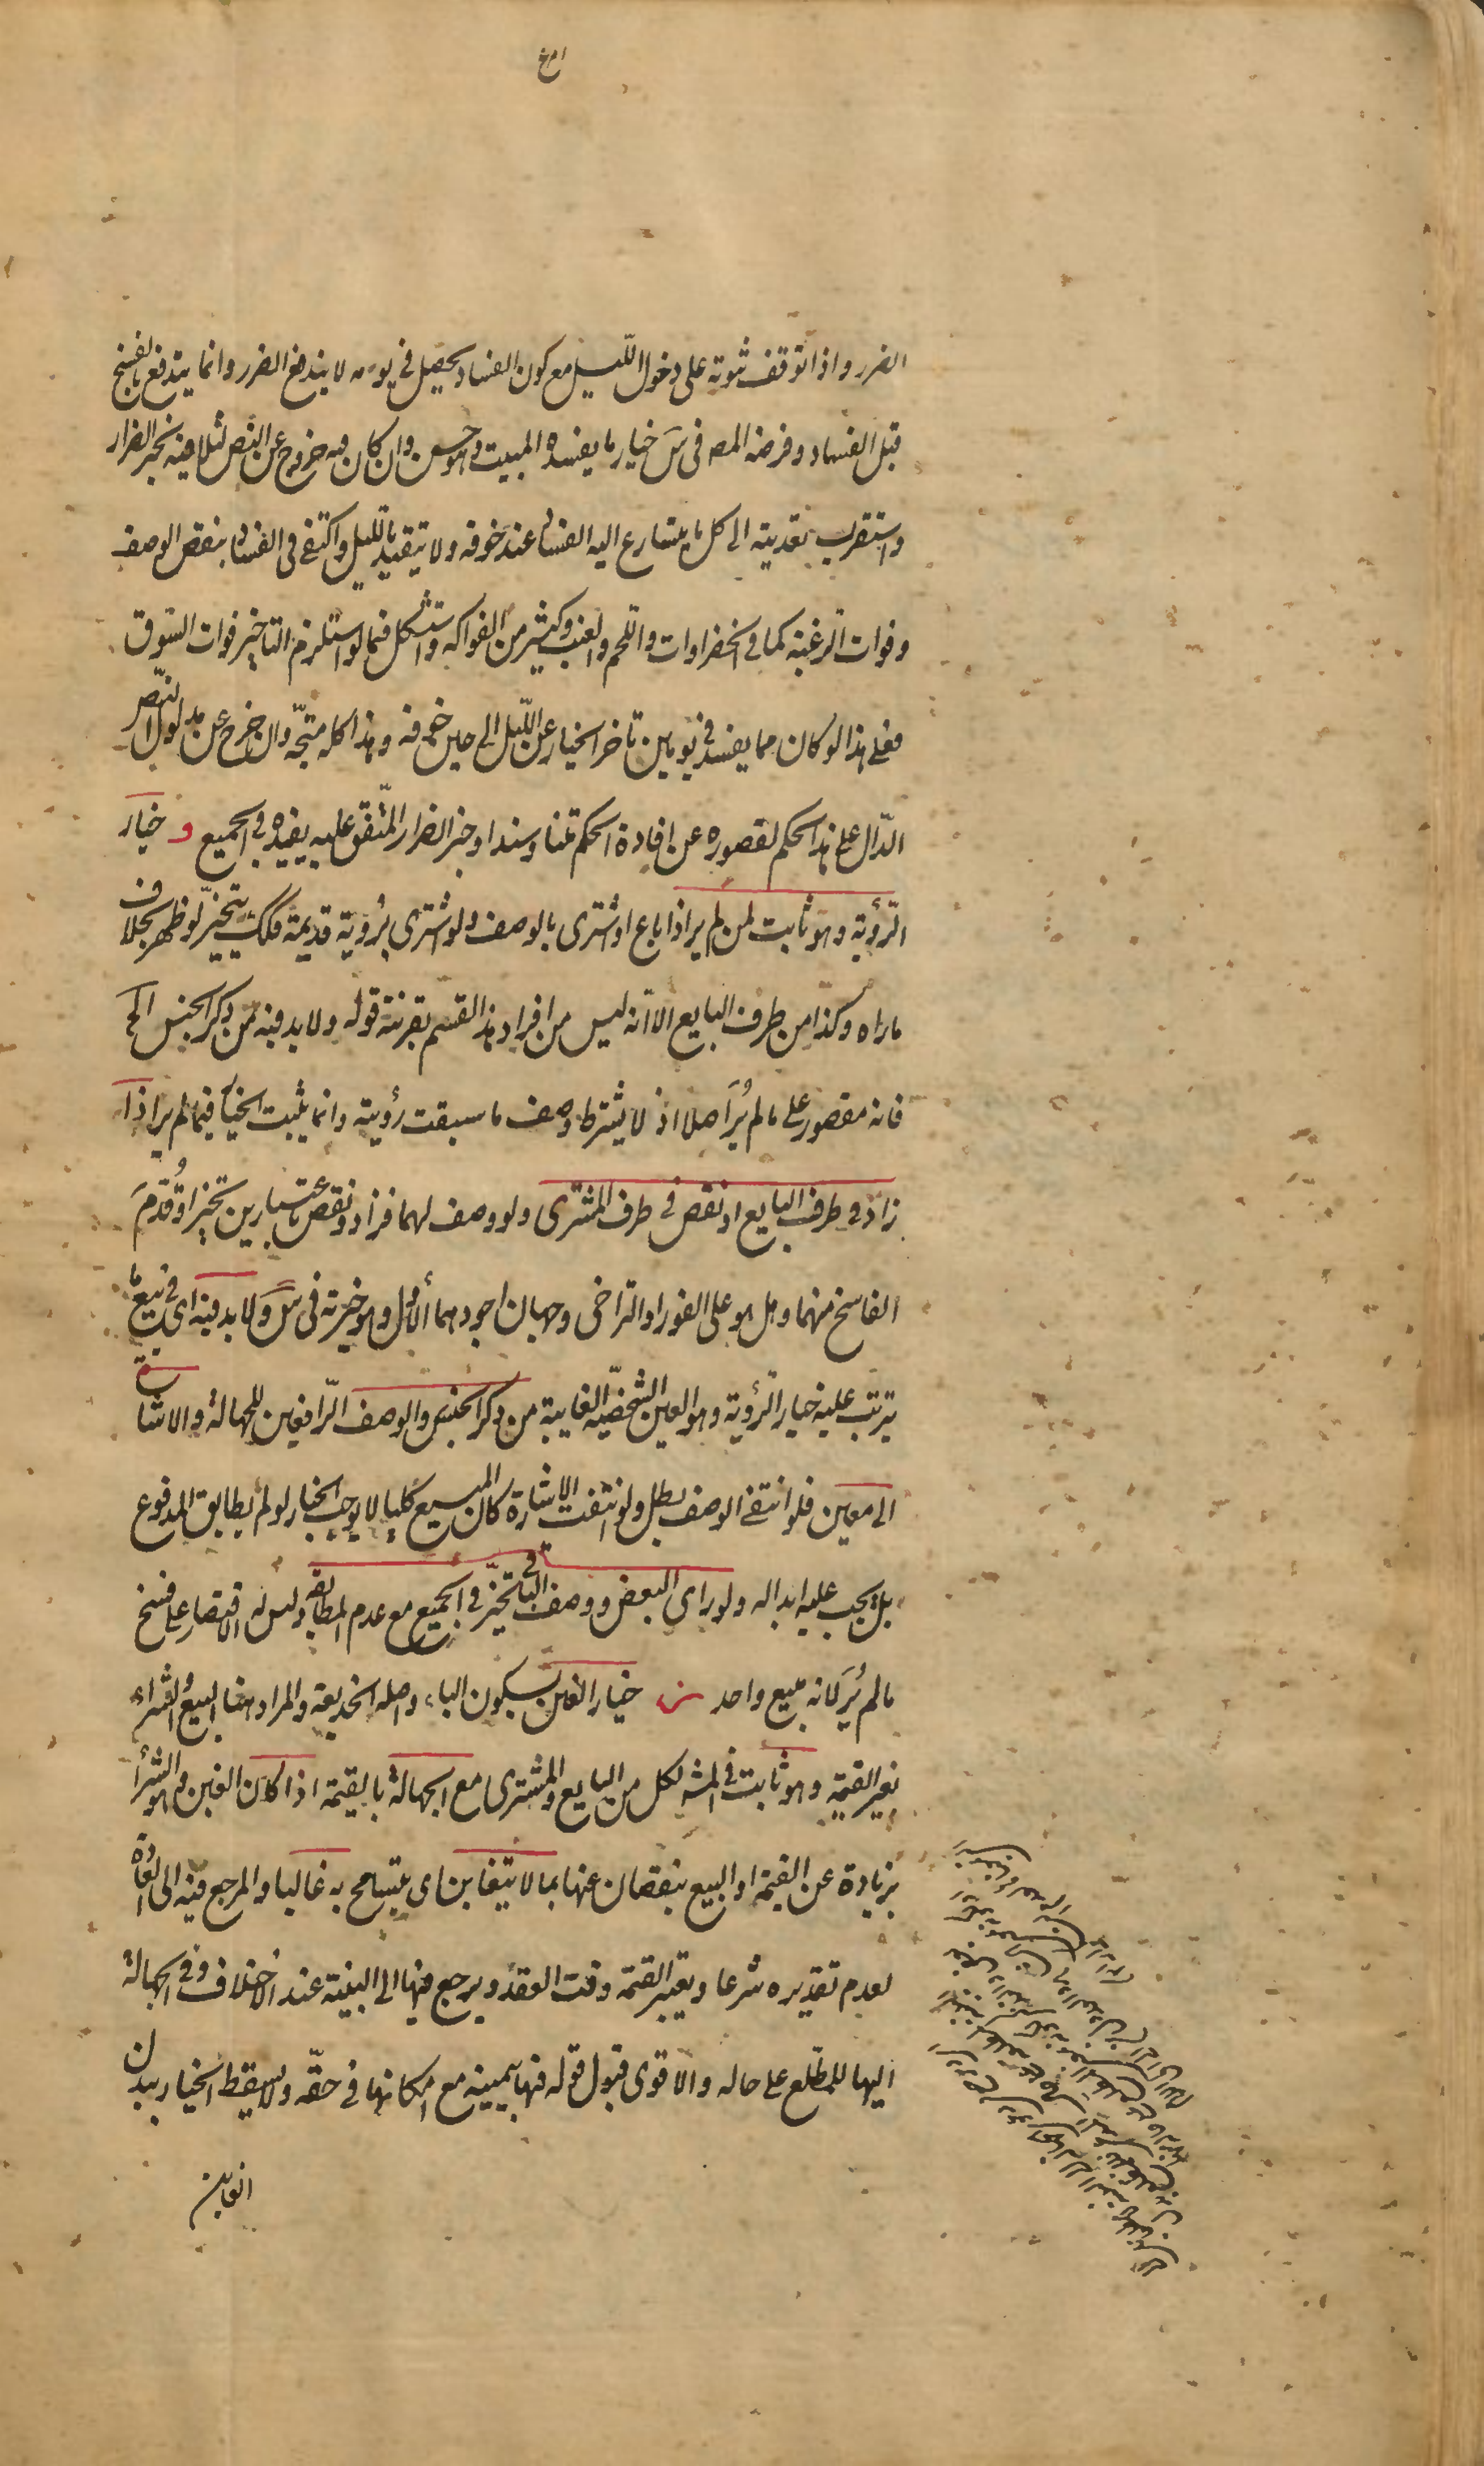 الضرر واذا توقف ثبوته على دخول اللّيل مع كون الفساد يحصل في يومه لا يندفع الضرر وانما يندفع بالفسخ
قبل الفساد وفرضه المص في س خيار ما يفسده المبيت وهو حسن وان كان فيه خروج عن النّص لتلافيه بخبر الضرار
واستقرب تعديته الى كل ما يتسارع اليه الفساد عند خوفه ولا يتقيد بالليل واكتفى في الفساد بنقص الوصف
وفوات الرغبة كما في الخضراوات واللحم والعنب وكثير من الفواكه واستشكل فيما لو استلزم التاخير فوات السّوق
فعلى هذا لو كان مما يفسد في يومين تاخر الخيار عن اللّيل الى حين خوفه وهذا كله متجّه وان خرج عن مدلول النّص
الدّال على هذا الحكم لقصوره عن افادة الحكم متنا وسندا وخبر الضرار المتّفق عليه يفيده في الجميع و خيار
الرّؤية وهو ثابت لمن لم ير اذا باع او اشترى بالوصف ولو اشترى برؤية قديمة فكك يتخيّر لو ظهر بخلاف
ما راه وكذا من طرف البايع الا انّه ليس من افراد هذا القسم بقرينة قوله ولا بد فيه من ذكر الجنس الخ
فانه مقصور على ما لم يُرَ اصلا اذ لا يشترط وصف ما سبقت رؤيته وانما يثبت الخيار فيما لم ير اذا
زاد في طرف البايع او نقص في طرف المشترى ولو وصف لهما فزاد ونقص باعتبارين تخيرا وقُدّمَ
الفاسخ منهما وهل هو على الفور او التراخى وجهان اجودهما الأول وهو خيرته في س ولا بد فيه اى في بيع ما
يترتب عليه خيار الرّؤية وهو العين الشخصّية الغايبة من ذكر الجنس والوصف الرّافعين للجهالة والاشارة
الى معين فلو انتفى الوصف بطل ولو انتفت الاشارة كان المبيع كليا لا يوجب الخيار لو لم يطابق المدفوع
بل يجب عليه ابداله ولو راى البعض ووصف الباقى تخيّر في الجميع مع عدم المطابقة وليس له الاقتصار على فسخ
ما لم يُرَ لانه مبيع واحد ز خيار الغبن بسكون الباء واصله الخديعة والمراد هنا البيع او الشراء
بغير القيمة وهو ثابت في المشهور لكل من البايع والمشترى مع الجهالة بالقيمة اذا كان الغبن وهو الشرأ
بزيادة عن القيمة او البيع بنقصان عنها بما لا يتغابن اى يتسامح به غالبا والمرجع فيه الى العادة
لعدم تقديره شرعا ويعتبر القيمة وقت العقد ويرجع فيها الى البينة عند الاختلاف وفي الجهالة
اليها للمطّلع على حاله والاقوى قبول قوله فيها بيمينه مع امكانها في حقّه ولا يسقط الخيار ببذل
الغابن